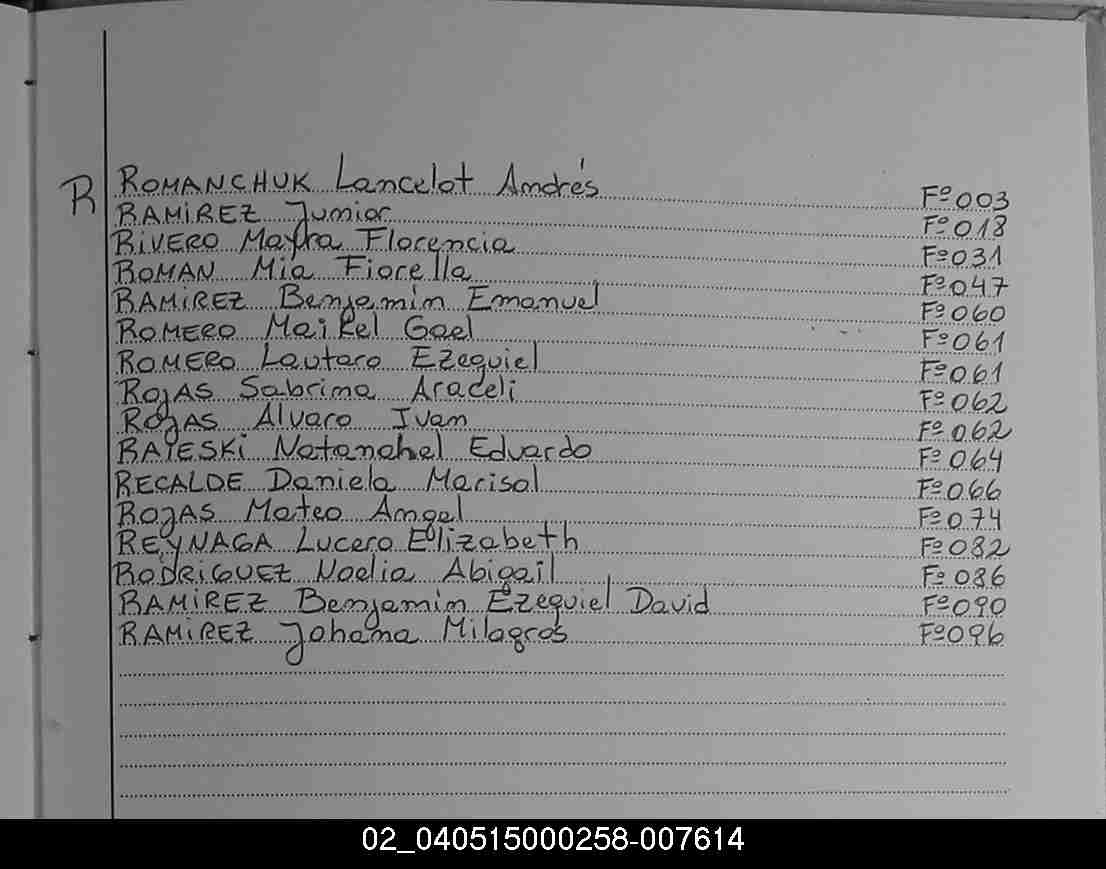 R
ROMANCHUK Lancelot Andrés Fº003
RAMIREZ Junior Fº018
RIVERO Mayra Florencia Fº031
ROMAN Mia Fiorella Fº047
RAMIREZ Benjamin Emanuel Fº060
ROMERO Maikel Gael Fº061
ROMERO Lautaro Ezequiel Fº061
ROJAS Sabrina Araceli Fº062
ROJAS Alvaro Ivan Fº062
RAIESKI Natanahel Eduardo Fº064
RECALDE Daniela Marisol Fº066
ROJAS Mateo Angel Fº074
REYNAGA Lucero Elizabeth Fº082
RODRIGUEZ Noelia Abigail Fº086
RAMIREZ Benjamin Ezequiel David Fº090
RAMIREZ Johana Milagros Fº096
02_040515000258-007614